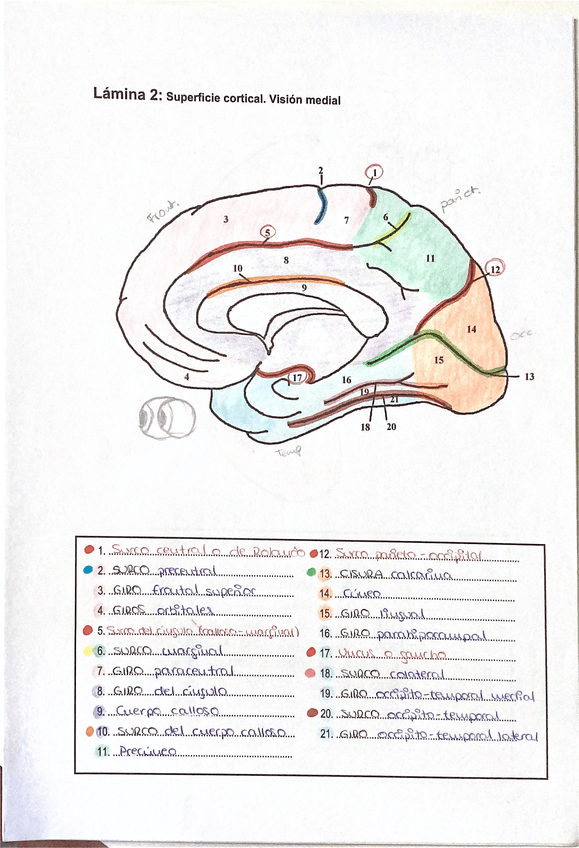 Lámina 2: Superficie cortical. Visión medial
Front.
pariet.
2
1
3
7
6
5
8
11
10
9
12
14
15
Occ
4
17
16
13
19
21
18
20
Temp
1. Surco central o de Rolando
2. SURCO precentral
3. GIRO frontal superior
4. GIROS orbitales
5. Surco del cíngulo (calloso-marginal)
6. SURCO marginal
7. GIRO paracentral
8. GIRO del cíngulo
9. Cuerpo calloso
10. SURCO del cuerpo calloso
11. Precúneo
12. Surco parieto-occipital
13. CISURA calcarina
14. Cúneo
15. GIRO lingual
16. GIRO parahipocampal
17. Uncus o gancho
18. SURCO colateral
19. GIRO occipito-temporal medial
20. SURCO occipito-temporal
21. GIRO occipito-temporal lateral